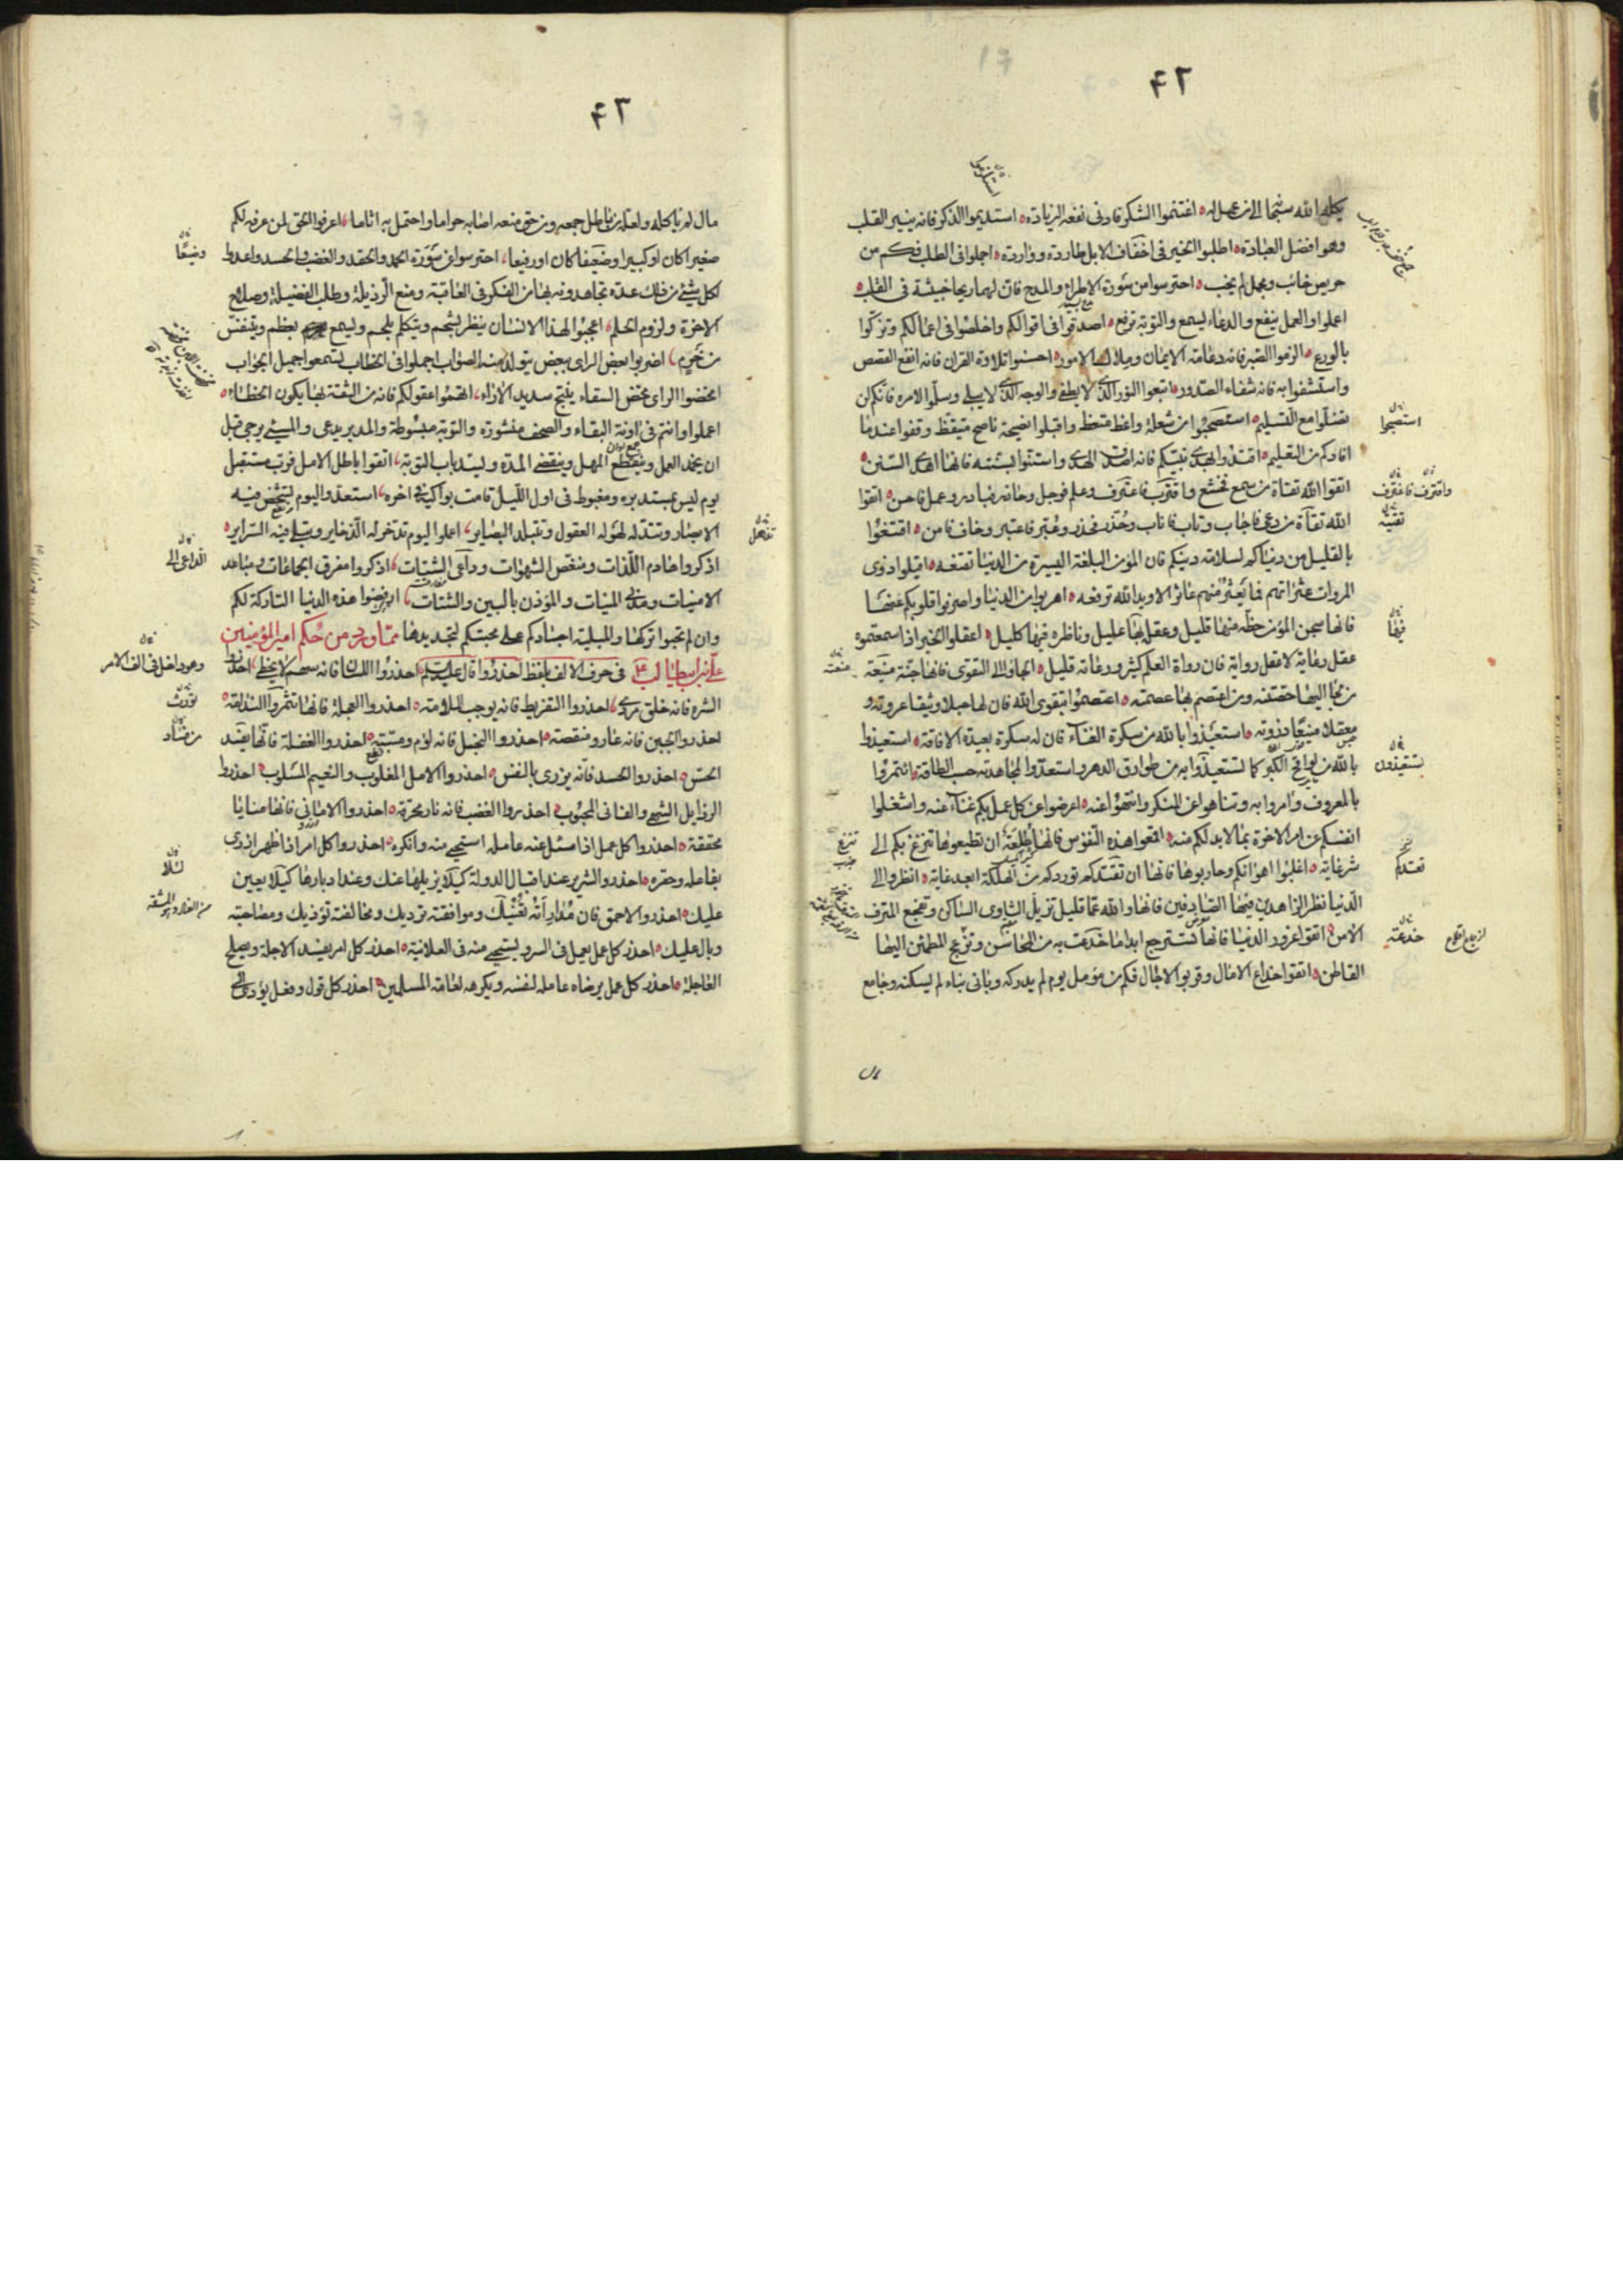 ٤٢
يكله الله سبحانه الى من عمل له اغتنموا الشكر فادنى نفعه الزيادة استديموا الذكر فانه ينير القلب
وهو افضل العبادة اطلبوا الخير فى اخفاف الابل طاردة وواردة اجملوا فى الطلب فكم من
حريص خائب ومجمل لم يخب احترسوا من سورة الاطراء والمدح فان لهما ريحا خبيثة فى القلب
اعملوا والعمل ينفع والدعاء يسمع والتوبة ترفع اصدقوا فى اقوالكم واخلصوا فى اعمالكم وتزكوا
بالورع الزموا الصبر فانه دعامة الايمان وملاك الامور احسنوا تلاوة القران فانه انفع القصص
واستشفوا به فانه شفاء الصدور اتبعوا النور الذى لا يطفى والوجه الذى لا يبلى وسلموا لامره فانكم لن
تضلوا مع التسليم استصبحوا من شعلة واعظ متعظ واقبلوا نصيحة ناصح متيقظ وقفوا عند ما
افادكم من التعليم اقتدوا بهدى نبيكم فانه اصدق الهدى واستنوا بسنته فانها اهدى السنن
اتقوا الله تقاة من سمع فخشع واقترف فاعترف وعلم فوجل وحاذر فبادر وعمل فاحسن اتقوا
الله تقاة من دعى فاجاب وتاب فاناب وحذر فحذر وعبر فاعتبر وخاف فامن اقتنعوا
بالقليل من دنياكم لسلامة دينكم فان المؤمن البلغة اليسيرة من الدنيا تقنعه اقيلوا ذوى
المروات عثراتهم فما يعثر منهم عاثر الا ويد الله ترفعه اهربوا من الدنيا واصرفوا قلوبكم عنها
فانها سجن المؤمن حظه منها قليل وعقله بها عليل وناظره فيها كليل اعقلوا الخبر اذا سمعتموه
عقل رعاية لا عقل رواية فان رواة العلم كثير ورعاته قليل الجاوا الى التقوى فانها جنة منيعة
من لجا اليها حصنته ومن اعتصم بها عصمته اعتصموا بتقوى الله فان لها حبلا وثيقا عروته و
معقلا منيعا ذروته استعيذوا بالله من سكرة الغناء فان له سكرة بعيدة الافاقة استعيذوا
بالله من لواقح الكبر كما تستعيذوا به من طوارق الدهر واستعدوا لمجاهدته حسب الطاقة ائتمروا
بالمعروف وامروا به وتناهوا عن المنكر وانتهوا عنه اعرضوا عن كل عمل بكم غناء عنه واشغلوا
انفسكم من امر الاخرة بما لا بد لكم منه اقمعوا هذه النفوس فانها طلعة ان تطيعوها تنزغ بكم الى
شر غاية اغلبوا اهوائكم وحاربوها فانها ان تقيدكم توردكم من الهلكة ابعد غاية انظروا الى
الدنيا نظر الزاهدين فيها الصادفين فانها والله عما قليل تزيل الثاوى الساكن وتفجع المترف
الامن اتقوا غرور الدنيا فانها تسترجع ابدا ما خدعت به من المحاسن وتزعج المطمئن اليها
القاطن اتقوا خداع الامال وقربوا الاجال فكم من مؤمل يوم لم يدركه وبانى بناء لم يسكنه وجامع
استصبحوا
واقترف فاعترف
تقية
فيها
منعة
تستعيذون
تقيدكم
خدعته
٤٣
مال لم ياكله ولعله من باطل جمعه ومن حق منعه اصابه حراما واحتمل به اثاما اعرفوا الحق لمن عرفه لكم
صغيرا كان او كبيرا وضيعا كان او رفيعا احترسوا من سورة الحمد والحقد والغضب والحسد واعدوا
لكل شئ من ذلك عدة تجاهدونه بها من الفكر فى العاقبة ومنع الرذيلة وطلب الفضيلة وصلاح
الاخرة ولزوم الحلم اعجبوا لهذا الانسان ينظر بشحم ويتكلم بلحم ويسمع بعظم ويتنفس
من خرم اضربوا بعض الراى ببعض يتولد منه الصواب اجملوا فى الخطاب تسمعوا جميل الجواب
امخضوا الراى مخض السقاء ينتج سديد الاراء اتهموا عقولكم فانه من الثقة بها يكون الخطاء
اعملوا وانتم فى اونة البقاء والصحف منشورة والتوبة مبسوطة والمدبر يدعى والمسئ يرجى قبل
ان يخمد العمل وينقطع المهل وينقضى المدة ويسد باب التوبة اتقوا باطل الامل فرب مستقبل
يوم ليس بمستدبره ومغبوط فى اول الليل قامت بواكيه فى اخره استعدوا ليوم تشخص فيه
الابصار وتتدله لهوله العقول وتتبلد البصاير اعملوا ليوم تدخر له الذخاير وتبلى فيه السراير
اذكروا هادم اللذات ومنغص الشهوات وداعى الشتات اذكروا مفرق الجماعات ومباعد
الامنيات ومدنى المنيات والمؤذن بالبين والشتات ارفضوا هذه الدنيا التاركة لكم
وان لم تحبوا تركها والمبلية اجسادكم على محبتكم لتجديدها مما ورد من حكم امير المؤمنين
على بن ابيطالب فى حرف الالف بلفظ احذروا قال عليه السلم احذروا اللسان فانه سهم لا يخطى احذروا
الشره فانه خلق مردى احذروا التفريط فانه يوجب الملامة احذروا العجلة فانها تثمر الندامة
احذروا الجبن فانه عار ومنقصة احذروا البخل فانه لؤم ومسبة احذروا الغفلة فانها يفسد
الحس احذروا الحسد فانه يزرى بالنفس احذروا الامل المغلوب والنعيم المسلوب احذروا
الزايل الشهى والفانى المحبوب احذروا الغضب فانه نار محرقة احذروا الامانى فانها منايا
محققة احذروا كل عمل اذا سئل عنه عامله استحيى منه وانكره احذروا كل امر اذا ظهر ازرى
بفاعله وحقره احذروا الشرير عند اقبال الدولة كيلا يزيلها عنك وعند ادبارها كيلا يعين
عليك احذروا الاحمق فان مداراته تعنيك وموافقته ترديك ومخالفته تؤذيك ومصاحبته
وبال عليك احذر كل عمل يعمل فى السر ويستحيى منه فى العلانية احذر كل امر يفسد الاجلة ويصلح
العاجلة احذر كل عمل يرضاه عامله لنفسه ويكرهه لعامة المسلمين احذر كل قول وفعل يؤدى الى
وضيعا
تذهل
الداعى الى
وهو داخل فى الف الامر
تورث
لئلا